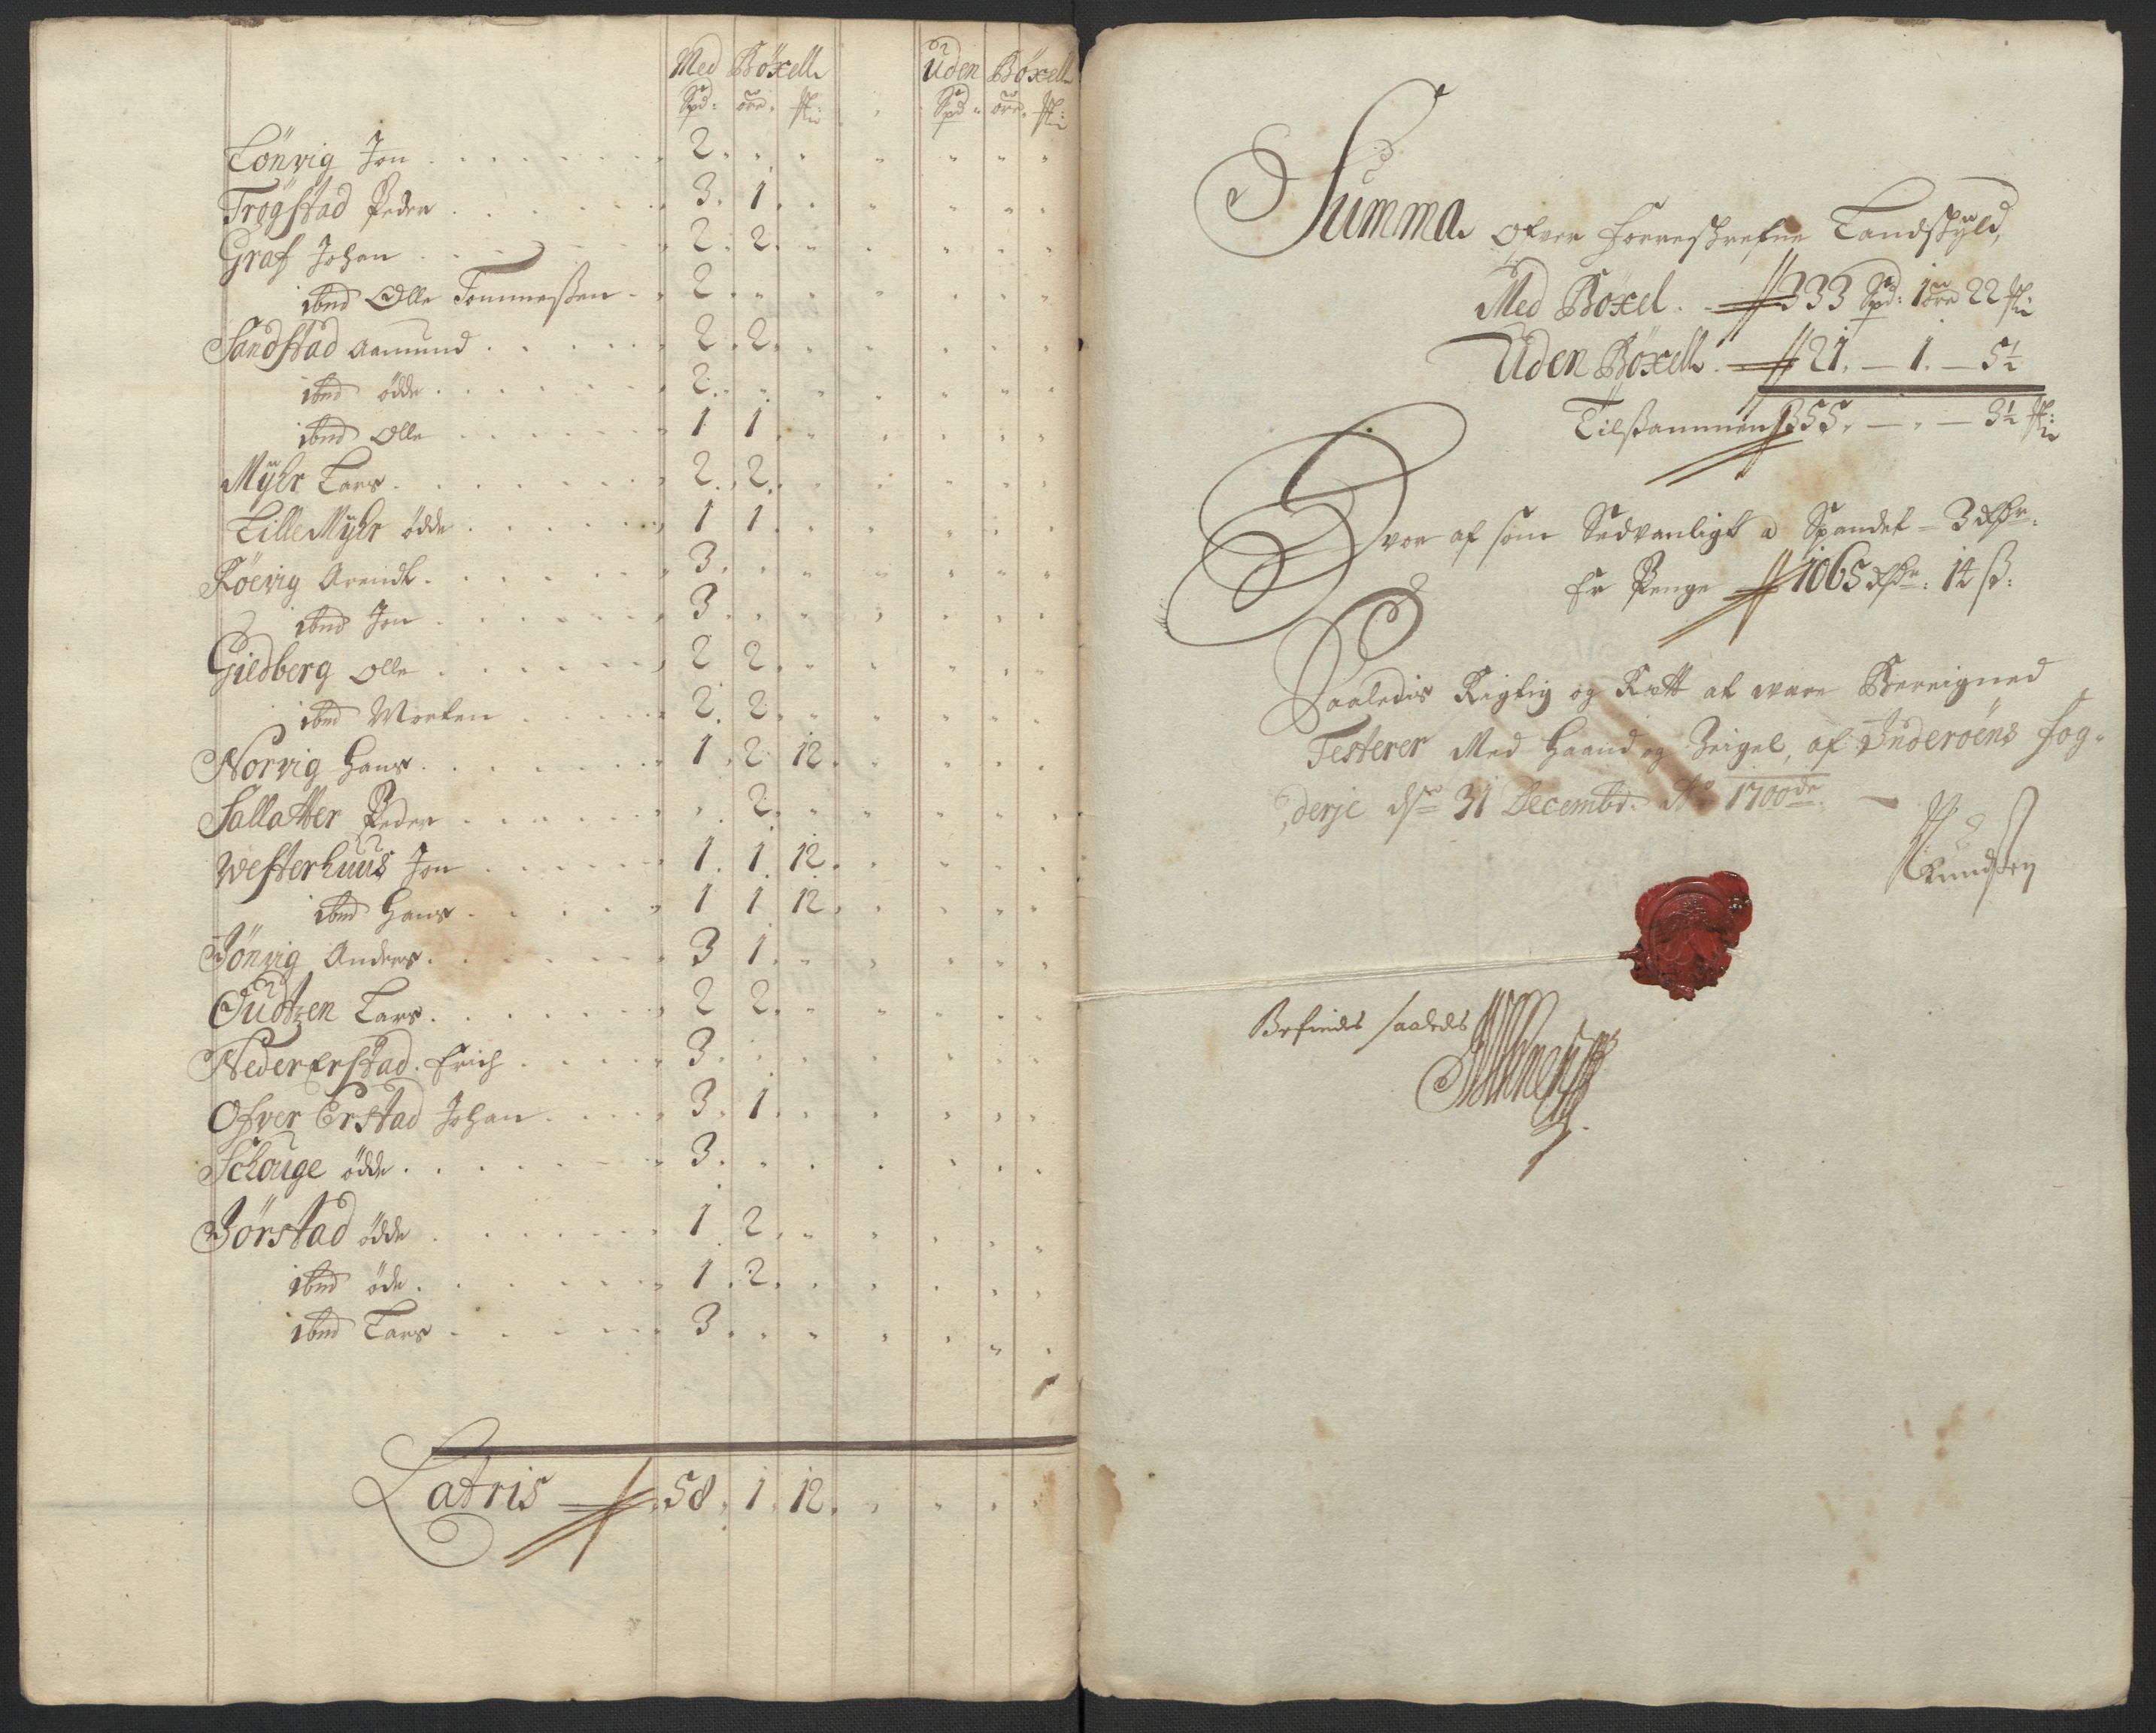 Med Böxell Uden Böxell
Spd: öre. ß: Spd öre. ß:
Lönvig Jon 2
Trögstad Peder 3. 1.
Graf Johan 2. 2.
ibnd Olle Tommeßen 2
Sandstad Aamund 2. 2.
ibnd ödde 2.
ibnd Olle 1 1
Mÿhr Lars 2. 2.
Lille Mÿhr ödde 1 1
Röevig Arendt 3.
ibnd Jon 3
Giedberg Olle 2 2.
ibnd Morten 2. 2.
Norvig Hans 1. 2 12.
Sallatter Peder 2.
Westerhuus Jon 1. 1. 12.
ibnd Hans 1 1 12.
Jönvig Anders 3 1.
Oudtzen Lars 2 2.
Neder Erstad Erich 3.
Ofver Erstad Johan 3. 1.
Schouge ödde 3.
Jörstad ödde 1. 2.
ibnd öde 1. 2.
ibnd Lars 3.
Latris 58. 1. 12.
Summa ofver forreskrefne Landskÿld,
Med Böxel 333 Spd: 1 öre 22 ß:
Uden Böxell 21. — 1. — 5½
Tilßammen 355. — . — 3½ ß:
Hvor af som Sedvanligt a Spandet — 3 Rdr.
Er Penge 1065 Rdr: 14 ß:
Saaledis Rigtig og Rett at vare Beregned
Testerer Med Haand og Zeigel, af Inderöens Fog-
derje dend 31 Decembr: Ao 1700de.
Knudsen
Befindes saaledes